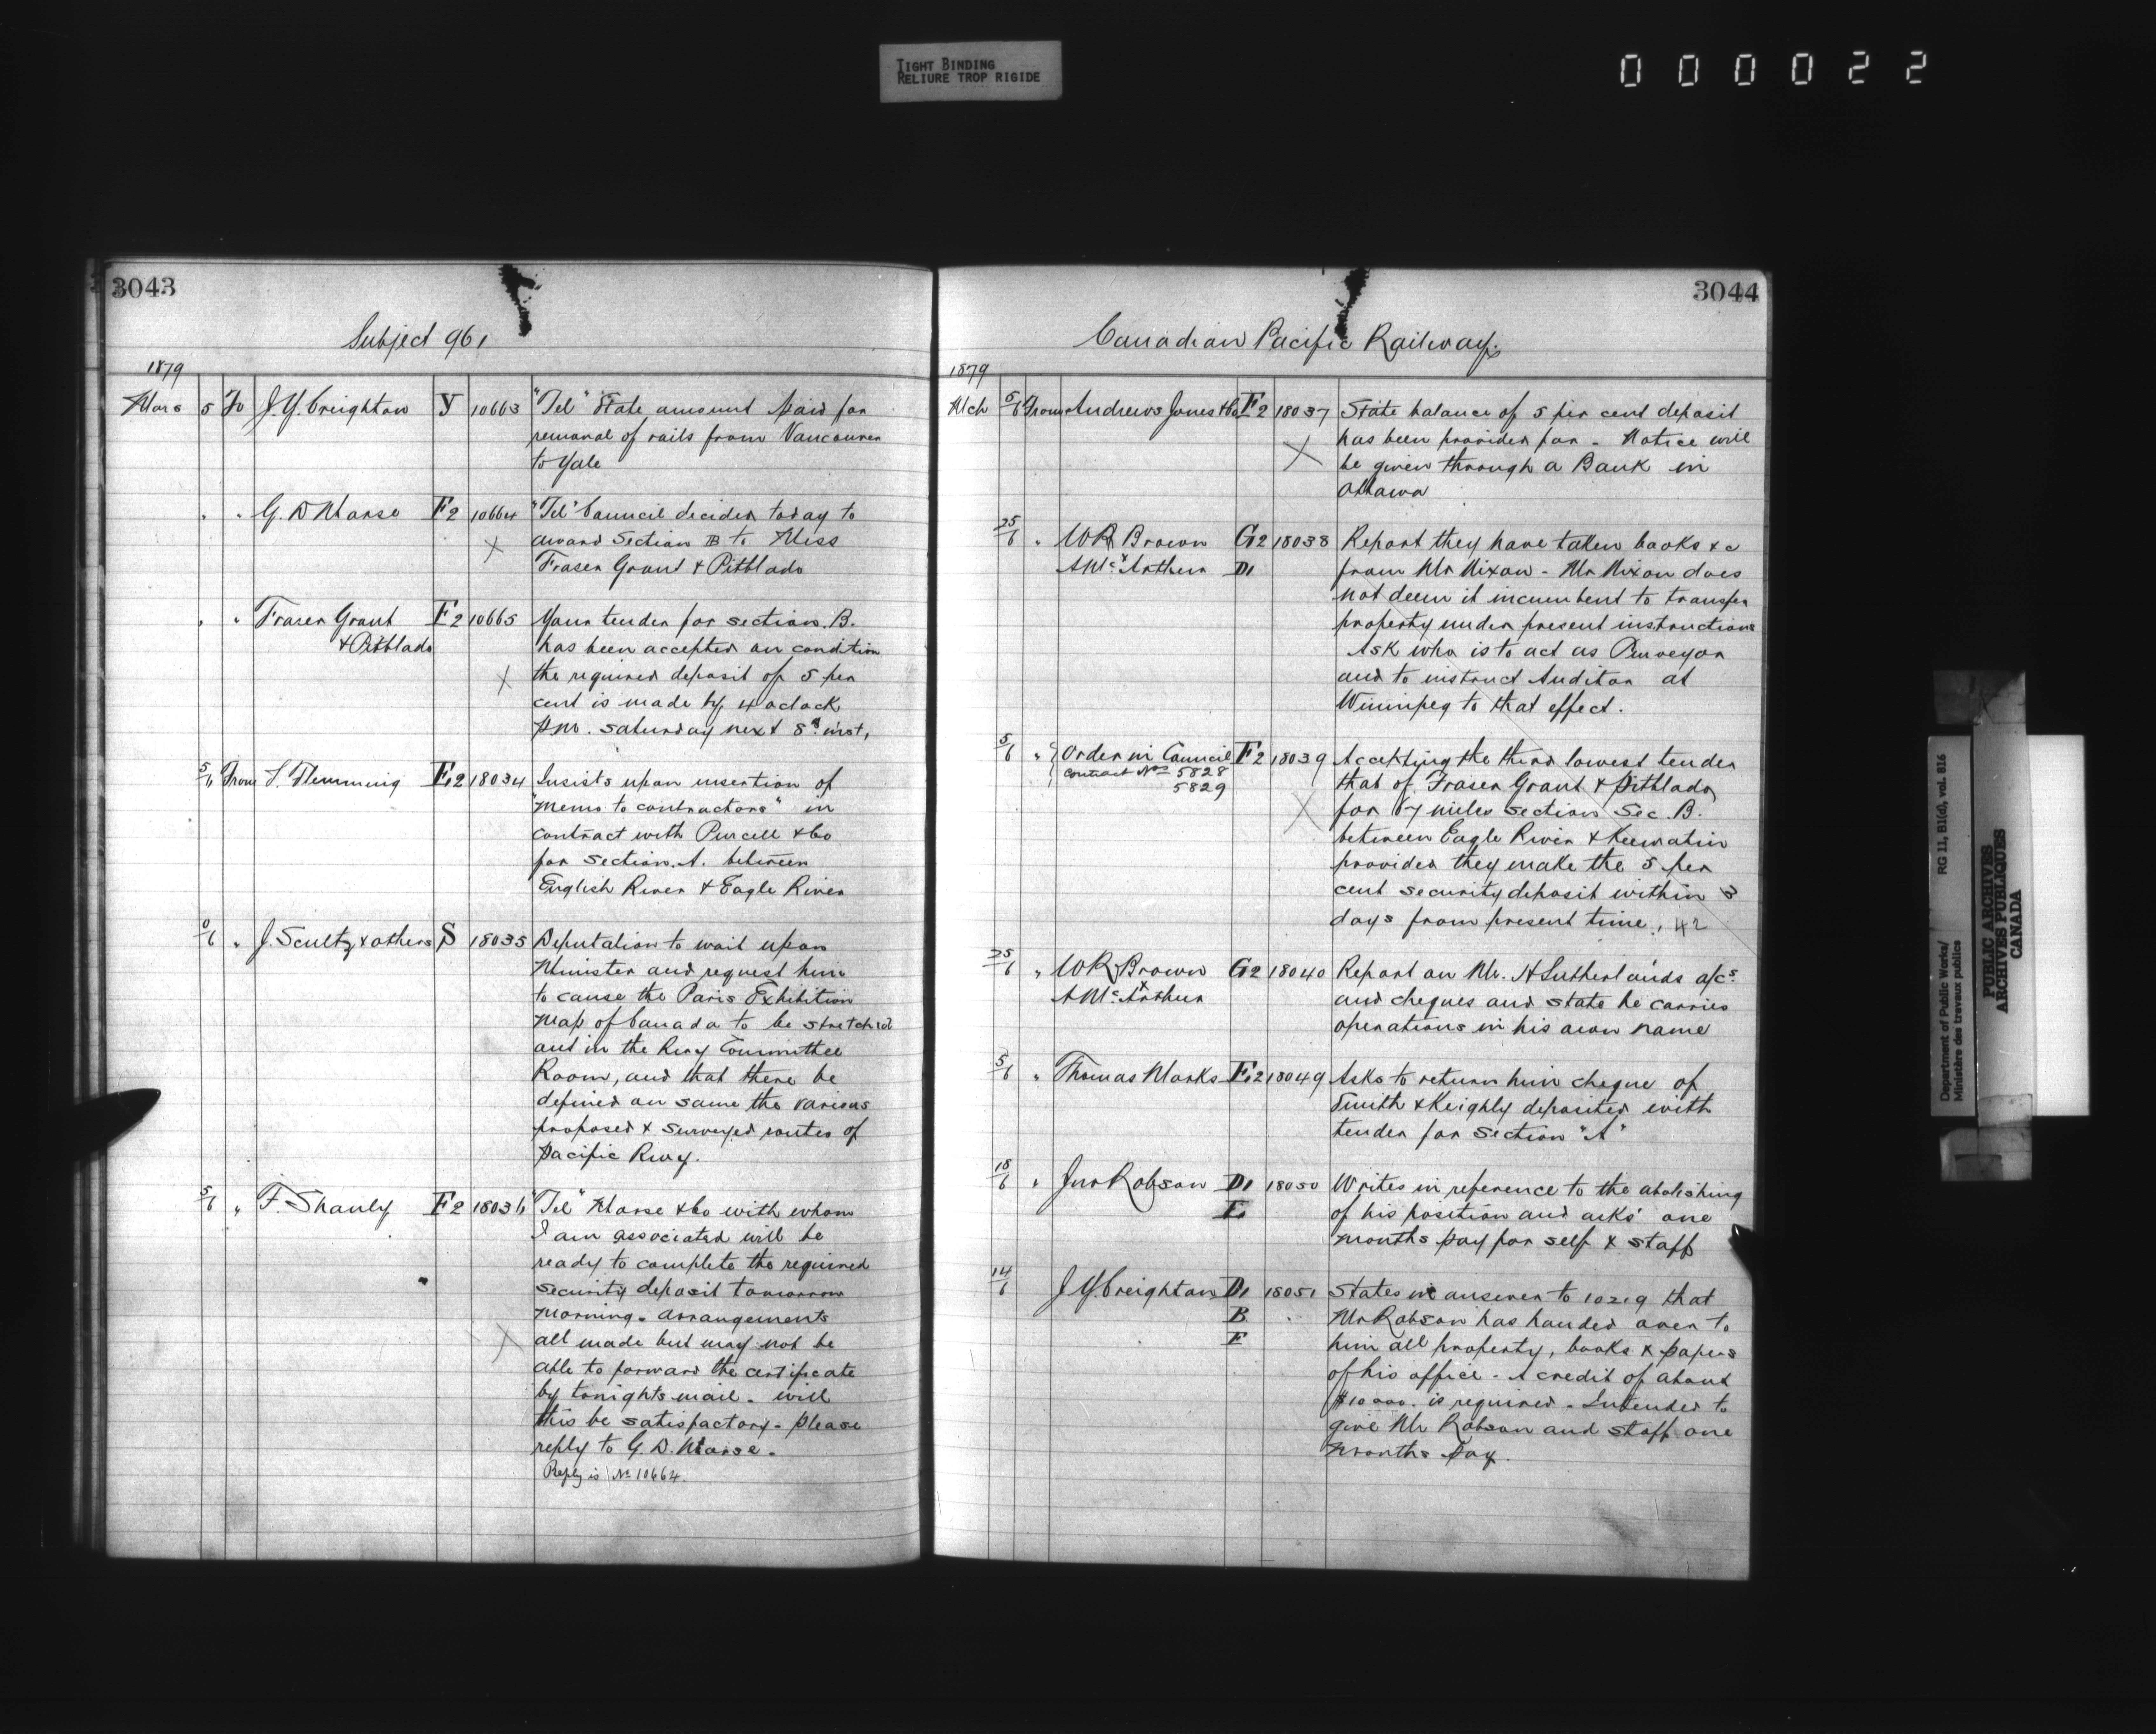 TIGHT BINDING
RELIURE TROP RIGIDE
000022
3043
Subject 961
1879
Mars 5 To J. Y. Creighton Y 10663 "Tel" State amount paid for
removal of rails from Vancouver
to Yale
" " G. D Morse F2 10664 "Tel" Council decided today to
award Section B to Mess
Fraser Grant & Pitblado
" " Fraser Grant F2 10665 Your tender for section. B.
& Pitblado has been accepted on condition
the required deposit of 5 per
cent is made by 4 oclock
P.M. Saturday next 8th inst,
5/6 From S. Flemming F.2 18034 Insists upon insertion of
"Memo to contractors" in
contract with Purcell & Co
for section. A. between
English River & Eagle River
0/6 " J. Scultz & others S 18035 Deputation to wait upon
Minister and request him
to cause the Paris Exhibition
Map of Canada to be stretched
out in the Rwy Committee
Room, and that there be
defined on same the various
proposed & surveyed routes of
Pacific Rwy.
5/6 " F. Shanly F2 18036 "Tel" Morse & Co with whom
I am associated will be
ready to complete the required
security deposit tomorrow
morning. arrangements
all made but may not be
able to forward the certificate
by tonights mail. will
this be satisfactory. please
reply to G. D. Morse.
Reply is No 10664.
3044
Canadian Pacific Railway.
1879
Mch 5/6 From Andrews Jones & Co F2 18037 State balance of 5 per cent deposit
has been provided for. Notice will
be given through a Bank in
Ottawa
25/6 " W R Brown G2 18038 Report they have taken books & c
A McArthur D1 from Mr Nixon - Mr Nixon does
not deem it incumbent to transfer
property under present instructions
Ask who is to act as Purveyor
and to instruct Auditor at
Winnipeg to that effect.
5/6 " Order in Council F2 18039 Accepting the third lowest tender
Contract Nos 5828 that of Fraser Grant & Pitblado
5829 for 67 miles section Sec. B.
between Eagle River & Keewatin
provided they make the 5 per
cent security deposit within 3
days from present time. 42
25/6 " W R Brown G2 18040 Report on Mr. H Sutherlands a/cs
A McArthur and cheques and state he carries
operations in his own name
5/6 " Thomas Marks F.2 18049 Asks to return him cheque of
Smith & Keighly deposited with
tender for section "A"
18/6 " Jno Robson D1 18050 Writes in reference to the abolishing
E. of his position and asks one
months pay for self & staff
14/6 J. Y. Creighton D1 18051 States in answer to 10219 that
B Mr Robson has handed over to
E him all property, books & papers
of his office - A credit of about
$10000. is required - Intended to
give Mr Robson and staff one
months pay.
Department of Public Works/ RG 11, B1(d), vol. 816
Ministère des travaux publics
PUBLIC ARCHIVES
ARCHIVES PUBLIQUES
CANADA